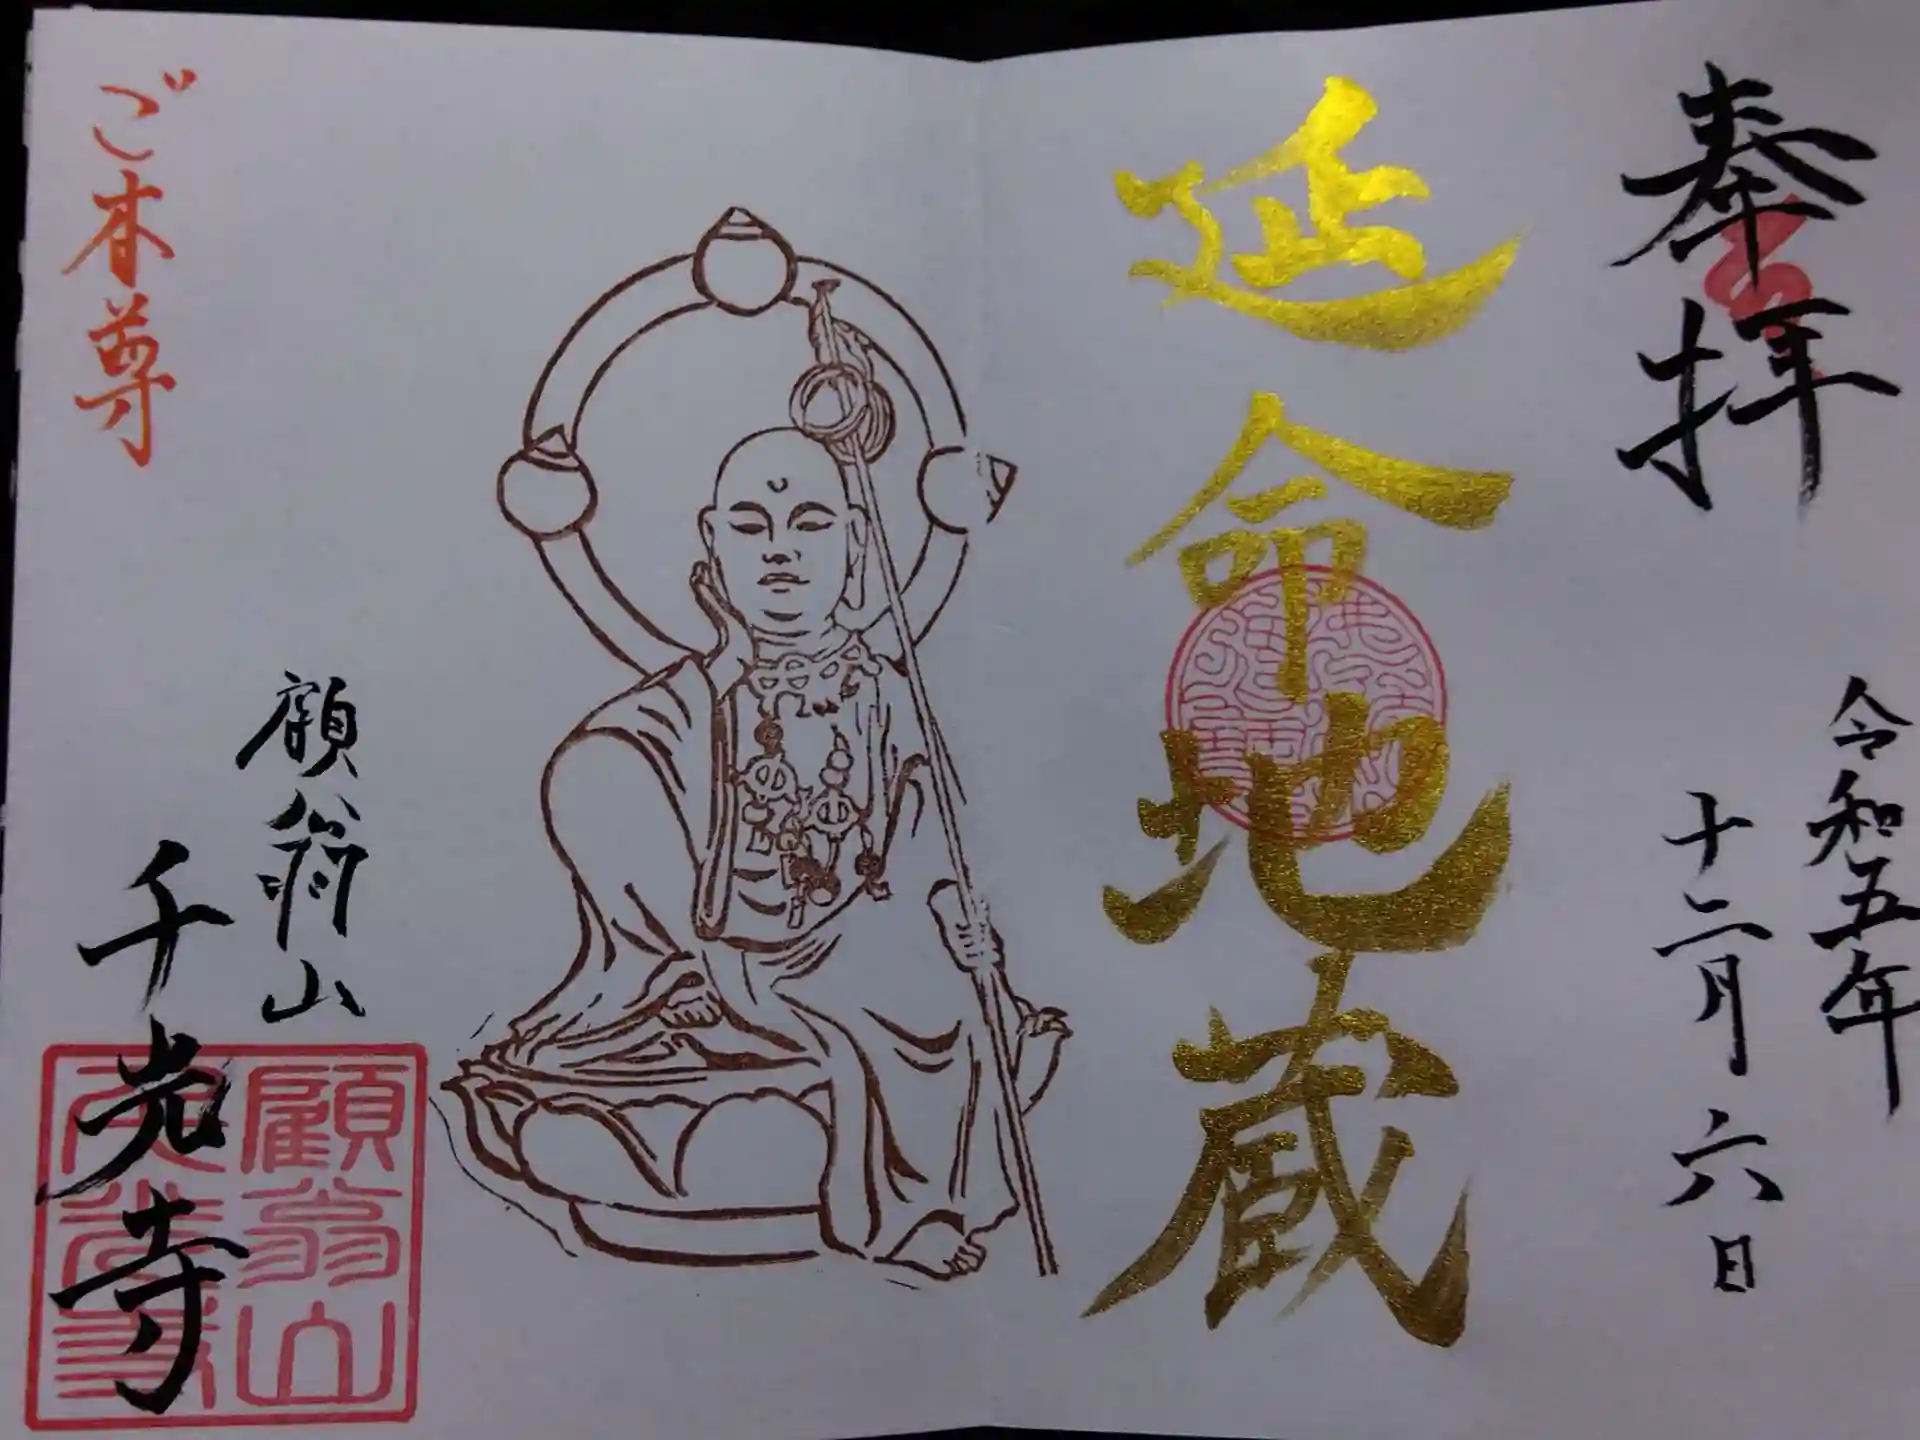 奉拝
令和五年
十二月六日
延命地蔵
ご本尊
顧翁山
千光寺
顧翁山
千光寺